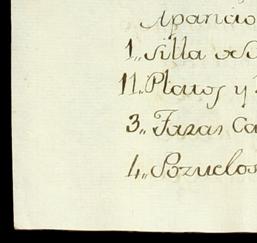 Aparicio
1,, Silla de
11,, Platos y
3,, Tazas Ca
4,, Pozuelos